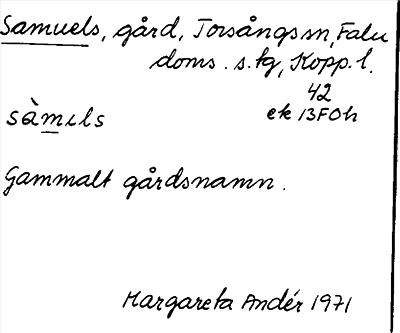 Samuels, gård, Torsångs sn, Falu
doms. s. tg, Kopp. l.
42
ek 13F0h
sàmɩls
Gammalt gårdsnamn.
Margareta Andér 1971